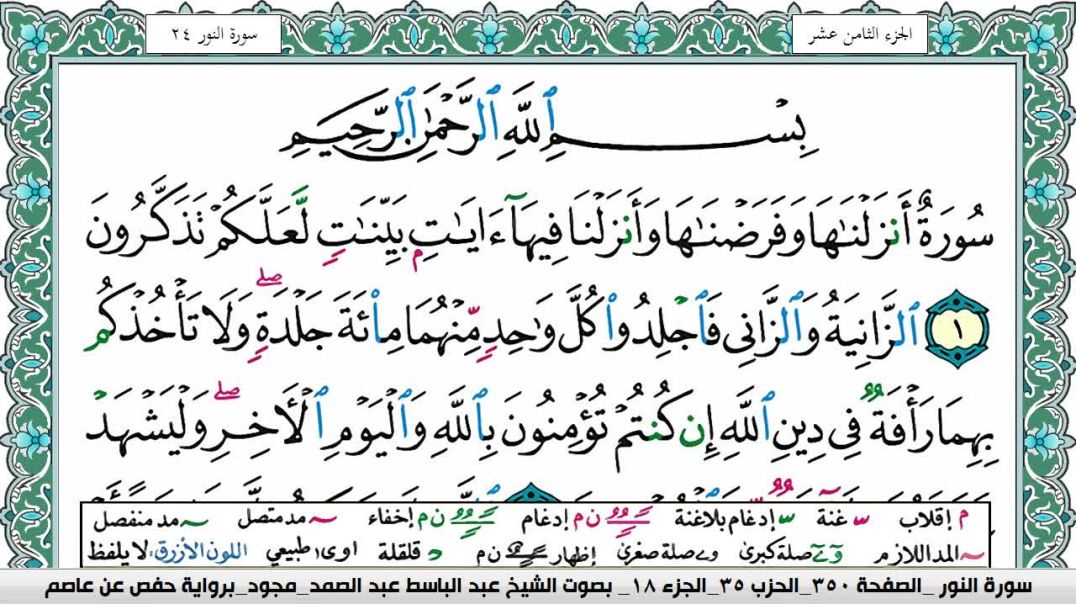 الجزء الثامن عشر
سورة النور ٢٤
بِسْمِ ٱللَّهِ ٱلرَّحْمَٰنِ ٱلرَّحِيمِ
سُورَةٌ أَنزَلْنَـٰهَا وَفَرَضْنَـٰهَا وَأَنزَلْنَا فِيهَآ ءَايَـٰتِۭ بَيِّنَـٰتٍ لَّعَلَّكُمْ تَذَكَّرُونَ
١ ٱلزَّانِيَةُ وَٱلزَّانِى فَٱجْلِدُوا۟ كُلَّ وَٰحِدٍ مِّنْهُمَا مِا۟ئَةَ جَلْدَةٍ ۖ وَلَا تَأْخُذْكُم
بِهِمَا رَأْفَةٌ فِى دِينِ ٱللَّهِ إِن كُنتُمْ تُؤْمِنُونَ بِٱللَّهِ وَٱلْيَوْمِ ٱلْـَٔاخِرِ ۖ وَلْيَشْهَدْ
م إقلاب س غنة س إدغام بلاغنة ن م إدغام ن م إخفاء ~ مد متصل ~ مد منفصل
~ المد اللازم صلة كبرى صلة صغرى إظهار ن م د قلقلة اوى طبيعي اللون الأزرق: لا يلفظ
سورة النور _الصفحة ٣٥٠_الحزب ٣٥_الجزء ١٨_ بصوت الشيخ عبد الباسط عبد الصمد_مجود_برواية حفص عن عاصم